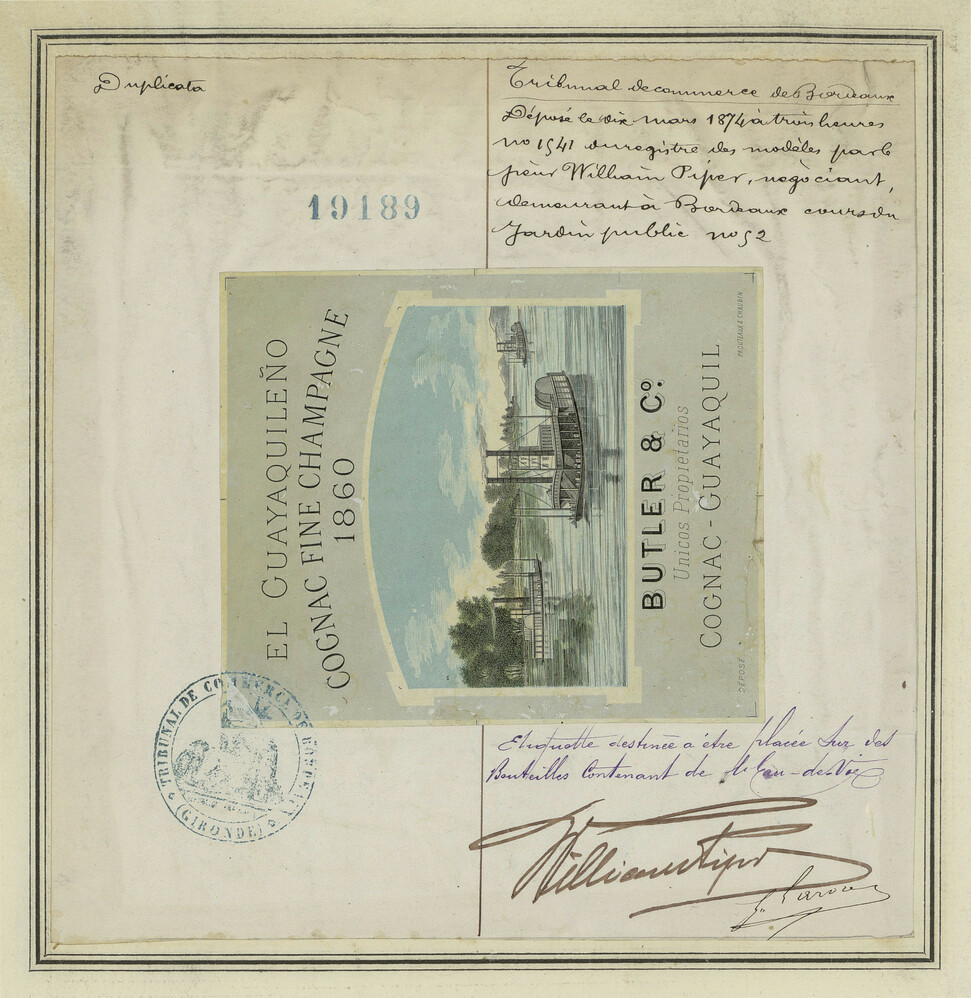 Duplicata
Tribunal de commerce de Bordeaux
Déposé le dix mars 1874 à trois heures
no 1541 du registre des modèles par le
sieur William Piper, négociant,
demeurant à Bordeaux cours du
Jardin public no 52
19189
EL GUAYAQUILEÑO
COGNAC FINE CHAMPAGNE
1860
BUTLER & Co.
Unicos Propietarios
COGNAC - GUAYAQUIL
DÉPOSÉ
PROUTEAUX & CHAUBIN
TRIBUNAL DE COMMERCE DE BORDEAUX
(GIRONDE)
Etiquette destinée a être placée Sur des
Bouteilles Contenant de l'Eau-de-Vie
William Piper